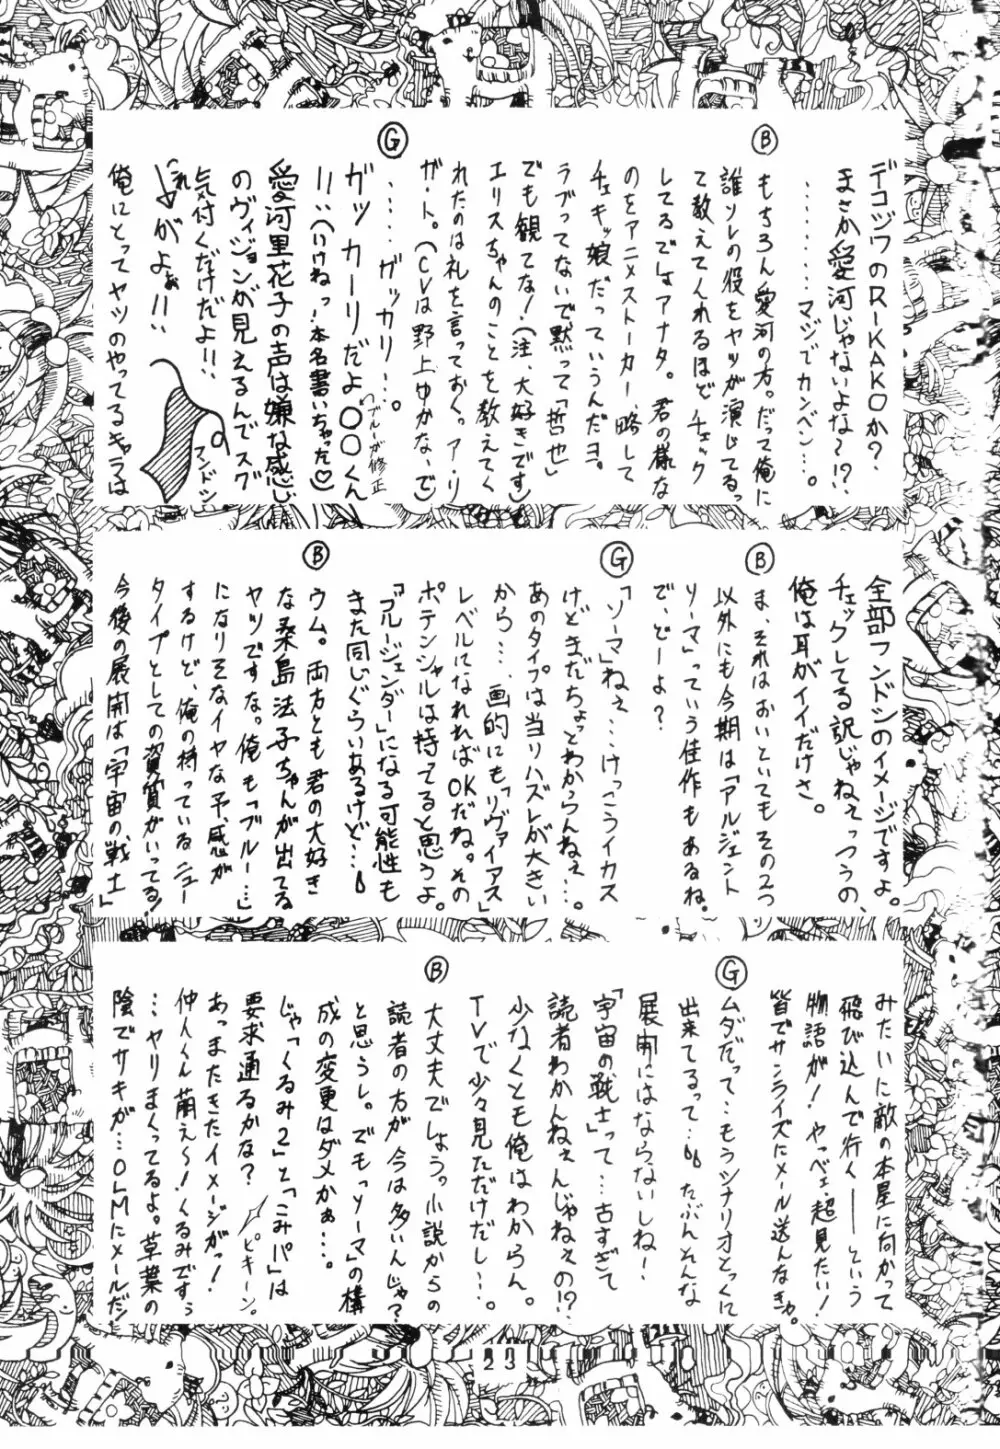 デコジワのRIKAKOか?
まさか愛河じゃないよな?!?
‥‥‥‥マジでカンベン…。
Ⓑ
もちろん愛河の方。だって俺に
誰ソレの役をヤツが演じてるっ
て教えてくれるほどチェック
してるでしょアナタ。君の様な
のをアニメストーカー、略して
チェキッ娘だっていうんだヨ。
ラブってないで黙って「哲也」
でも観てな!(注、大好きです)
エリスちゃんのことを教えてく
れたのは礼を言っておく。ア・リ
ガ・ト。(CVは野上ゆかな、で)
Ⓖ
‥‥‥ガッカリ…。
ガッカーリだよ〇〇くん
へブルーが修正
!!(いけねっ!本名書いちゃった♡)
愛河里花子の声は嫌な感じ
のヴィジョンが見えるんでスグ
気付くだけだよ!!
アンドン
これ
がよぉ!!
俺にとってヤツのやってるキャラは
全部フンドシのイメージですよ。
チェックしてる訳じゃねえっつうの、
俺は耳がイイだけさ。
Ⓑ
ま、それはおいといてもその2つ
以外にも今期は「アルジェント
ソーマ」っていう佳作もあるね。
で、どーよ?
Ⓖ
「ソーマ」ねぇ…けっこうイカス
けどまだちょっとわからんねぇ…。
あのタイプは当りハズレが大きい
から…、画的にも「リヴァイアス」
レベルになれればOKだね。その
ポテンシャルは持ってると思うよ。
「ブルージェンダー」になる可能性も
また同じぐらいあるけど…。
Ⓑ
ウム。両方とも君の大好き
な桑島法子ちゃんが出てる
ヤツですな。俺も「ブルー…」
になりそなイヤな予感が
するけど、俺の持っているニュー
タイプとしての資質がいってる!
今後の展開は「宇宙の戦士」
みたいに敵の本星に向かって
飛び込んで行く──という
物語が!やっべェ超見たい!
皆でサンライズにメール送んなきゃ。
Ⓖ
ムダだって…もうシナリオとっくに
出来てるって…。たぶんそんな
展開にはならないしね!
「宇宙の戦士」って…古すぎて
読者わかんねぇんじゃねぇの!?
少なくとも俺はわからん。
TVで少々見ただけだし…。
Ⓑ
大丈夫でしょう。小説からの
読者の方が今は多いんじゃ?
と思うし。でも「ソーマ」の構
成の変更はダメかぁ…。
じゃ「くるみ2」と「こみパ」は
要求通るかな?
ピキーン。
あっまたきたイメージがっ!
仲人くん萌え〜!くるみですぅ
…ヤリまくってるよ。草葉の
陰でサキが…OLMにメールだ!
23